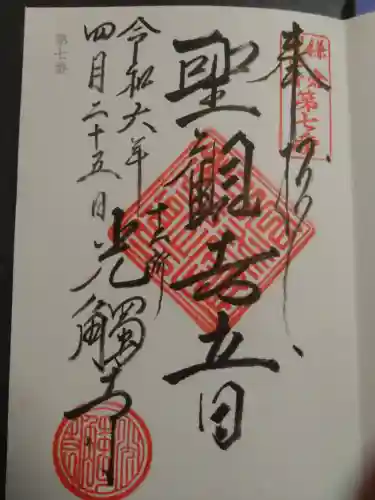 鎌倉第七番
奉拝
聖観音
十二所
光觸寺
令和六年
四月二十五日
第七番